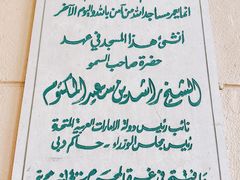 انما يعمر مساجد الله من آمن بالله واليوم الآخر
أنشئ هذا المسجد في عهد
حضرة صاحب السمو
الشيخ راشد بن سعيد المكتوم
نائب رئيس دولة الامارات العربية المتحدة
رئيس مجلس الوزراء - حاكم دبي